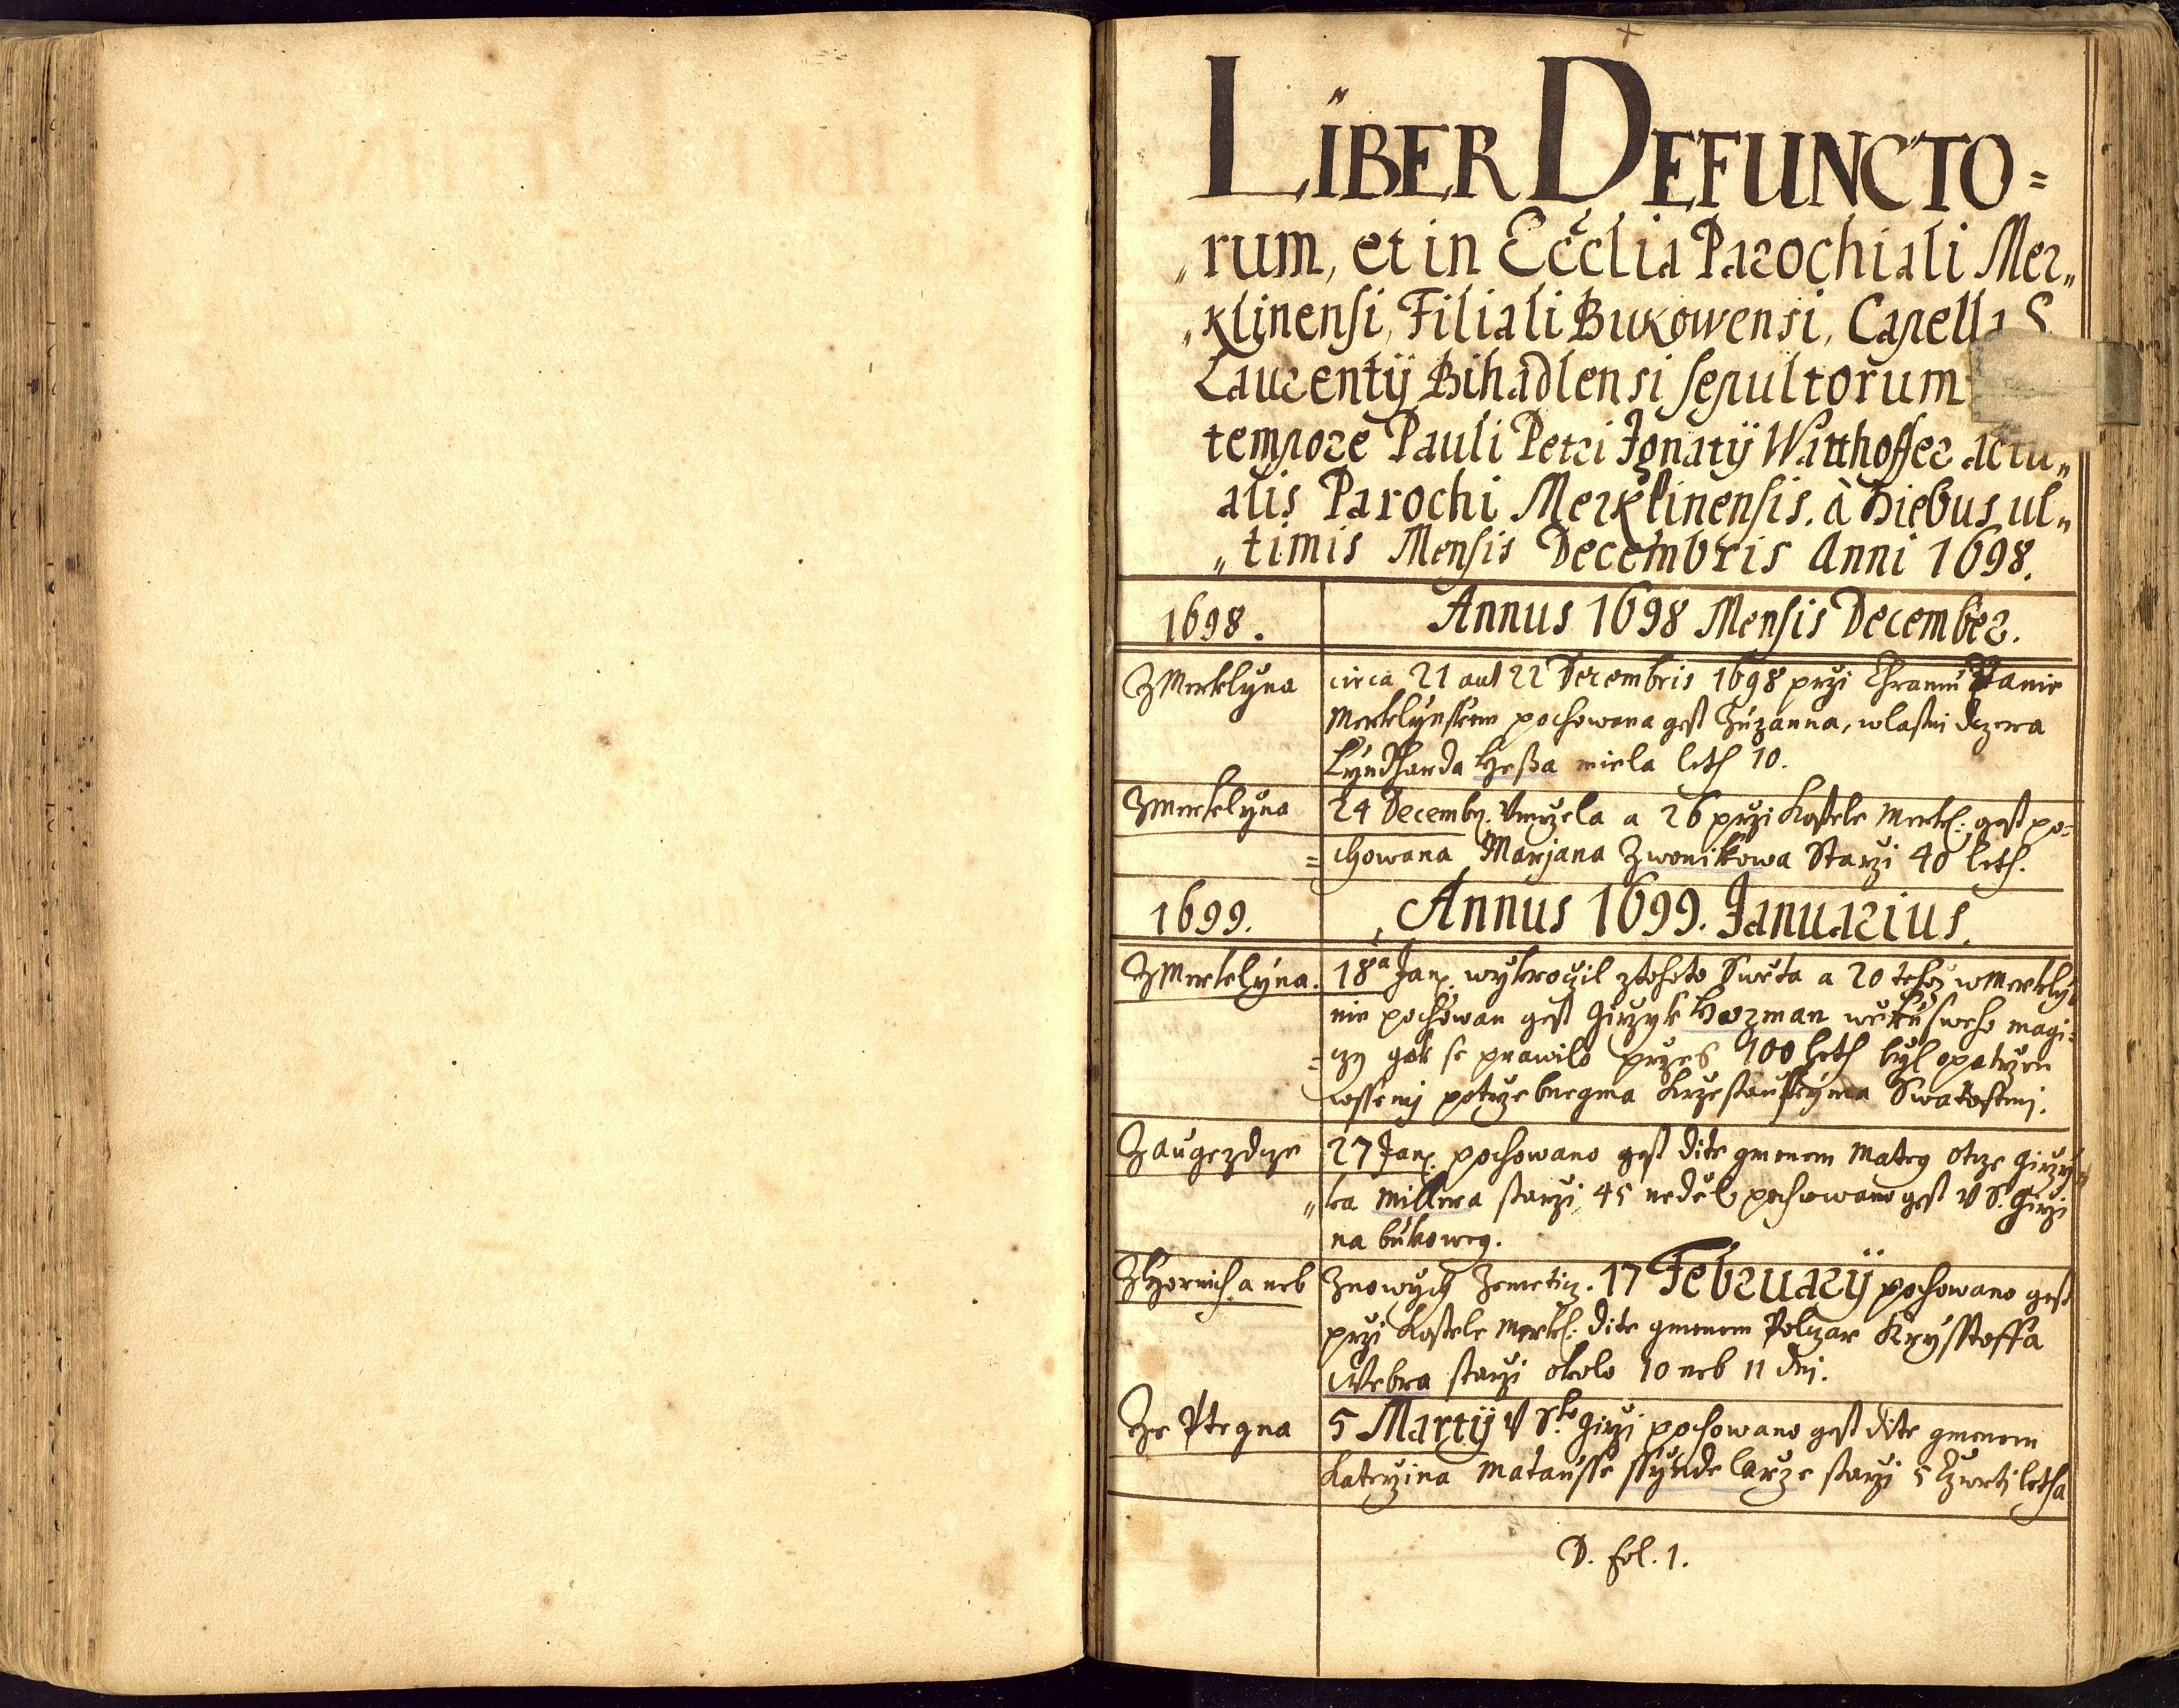 LIBER DEFUNCTO=
„rum, et in Ecclia Parochiali Mer„
„klinensi, Filiali Bukowensi, Capella S
Laurentÿ Bihadlensi sepultorum
tempore Pauli Petri Ignatÿ Watthoffer actu„
alis Parochi Merklinensis. à diebus ul„
„timis Mensis Decembris Anni 1698.
1698. Annus 1698 Mensis December.
Z Merklyna circa 21 aut 22 Decembris 1698 przi Chramu Panie
Merklynskem pochowana gest Zuzanna, wlastni dczera
Lyndharda Heßa miela leth 10.
Z Merklyna 24 Decembr. Vmrzela a 26 przi Kostele Merkl: gest po=
=chowana Marjana Zwonikowa Starzi 40 leth.
1699. Annus 1699. Januarius.
Z Merklyna. 18a Jan. wykrocził z tohoto Swěta a 20 tehoz w Merkly
nie pochowan gest Girzyk Hozman wěku sweho magi=
=czy gak se prawilo przes 100 leth byl opatrzen
wssemi potrzebnegma Krzestanskyma Swatostmi.
Z augezdcze 27 Jan. pochowano gest dite gmenem Mateg otcze Girzy„
„ka Millera starzi 45 neděl pochowano gest V S. Girzi
na bukoweg.
Z Hornich a neb Z nowych Zemeticz. 17 Februarÿ pochowano gest
przi Kostele Merkl: dite gmenem Polczar Krysstoffa
Webra starzi okolo 10 neb 11 dni.
Ze Ptegna 5 Martÿ V Sho Girzi pochowano gest dite gmenem
Katerzina Matausse ssyndelarze starzi 5 Cztwrti letha
D. fol. 1.